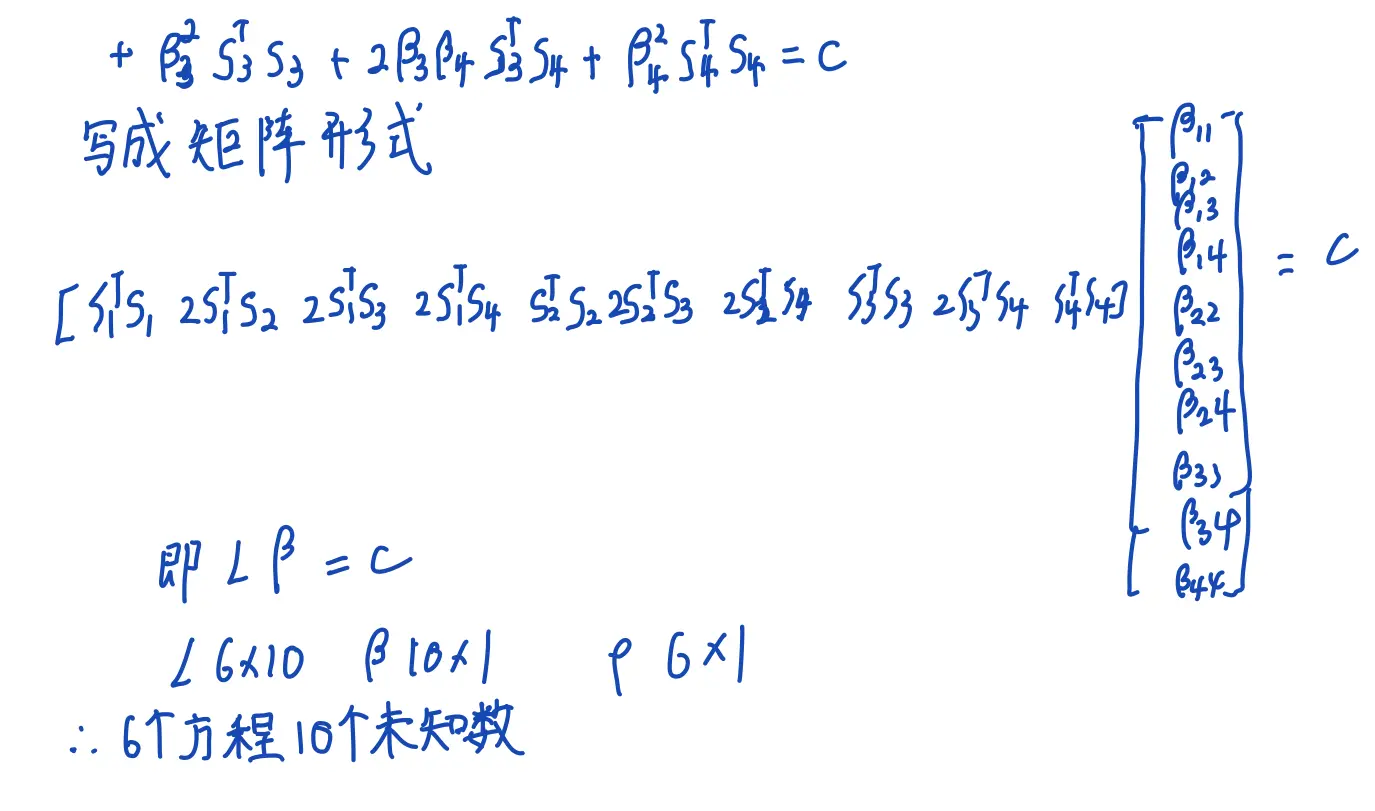 + β₃² S₃ᵀ S₃ + 2β₃β₄ S₃ᵀS₄ + β₄² S₄ᵀ S₄ = C
写成矩阵形式
[ S₁ᵀS₁ 2S₁ᵀS₂ 2S₁ᵀS₃ 2S₁ᵀS₄ S₂ᵀS₂ 2S₂ᵀS₃ 2S₂ᵀS₄ S₃ᵀS₃ 2S₃ᵀS₄ S₄ᵀS₄ ]
β₁₁
β₁₂
β₁₃
β₁₄
β₂₂
β₂₃
β₂₄
β₃₃
β₃₄
β₄₄
= C
即 L β = C
L 6×10 β 10×1 ρ 6×1
∴ 6个方程10个未知数